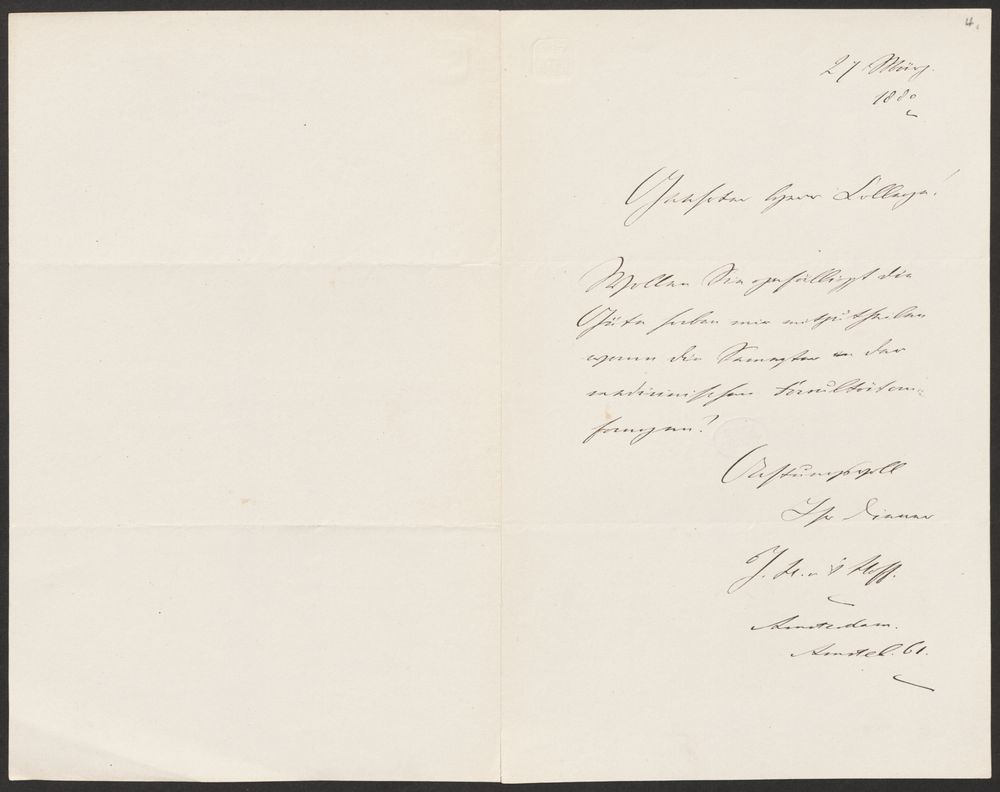 4.
27 März.
1880
Geehrter Herr College!
Wollen Sie gefälligst die
Güte haben mir mitzutheilen
wann die Semester an der
medicinischen Facultät an-
fangen?
Achtungsvoll
Ihr Diener
J. H. v 't Hoff.
Amsterdam.
Amstel. 61.